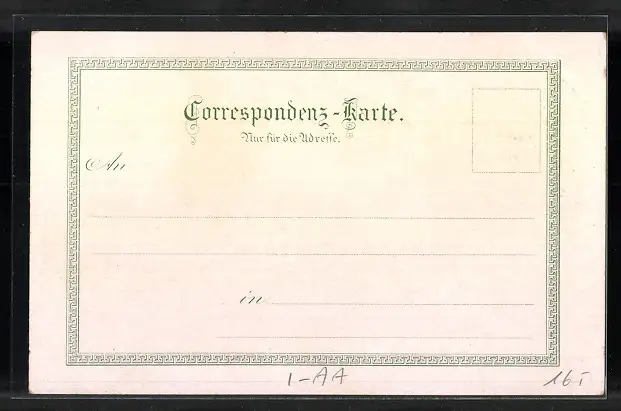 Correspondenz-Karte.
Nur für die Adresse.
An
in
1-AA